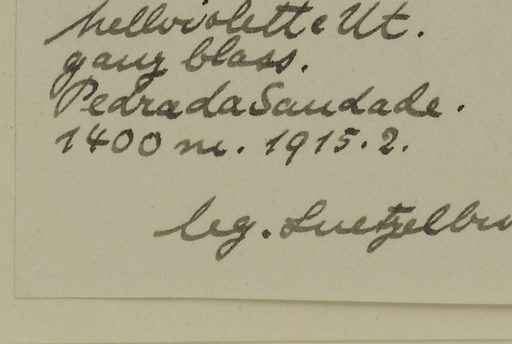 hellviolette Ut.
ganz blass.
Pedra da Saudade.
1400 m. 1915. 2.
leg. Luetzelbu